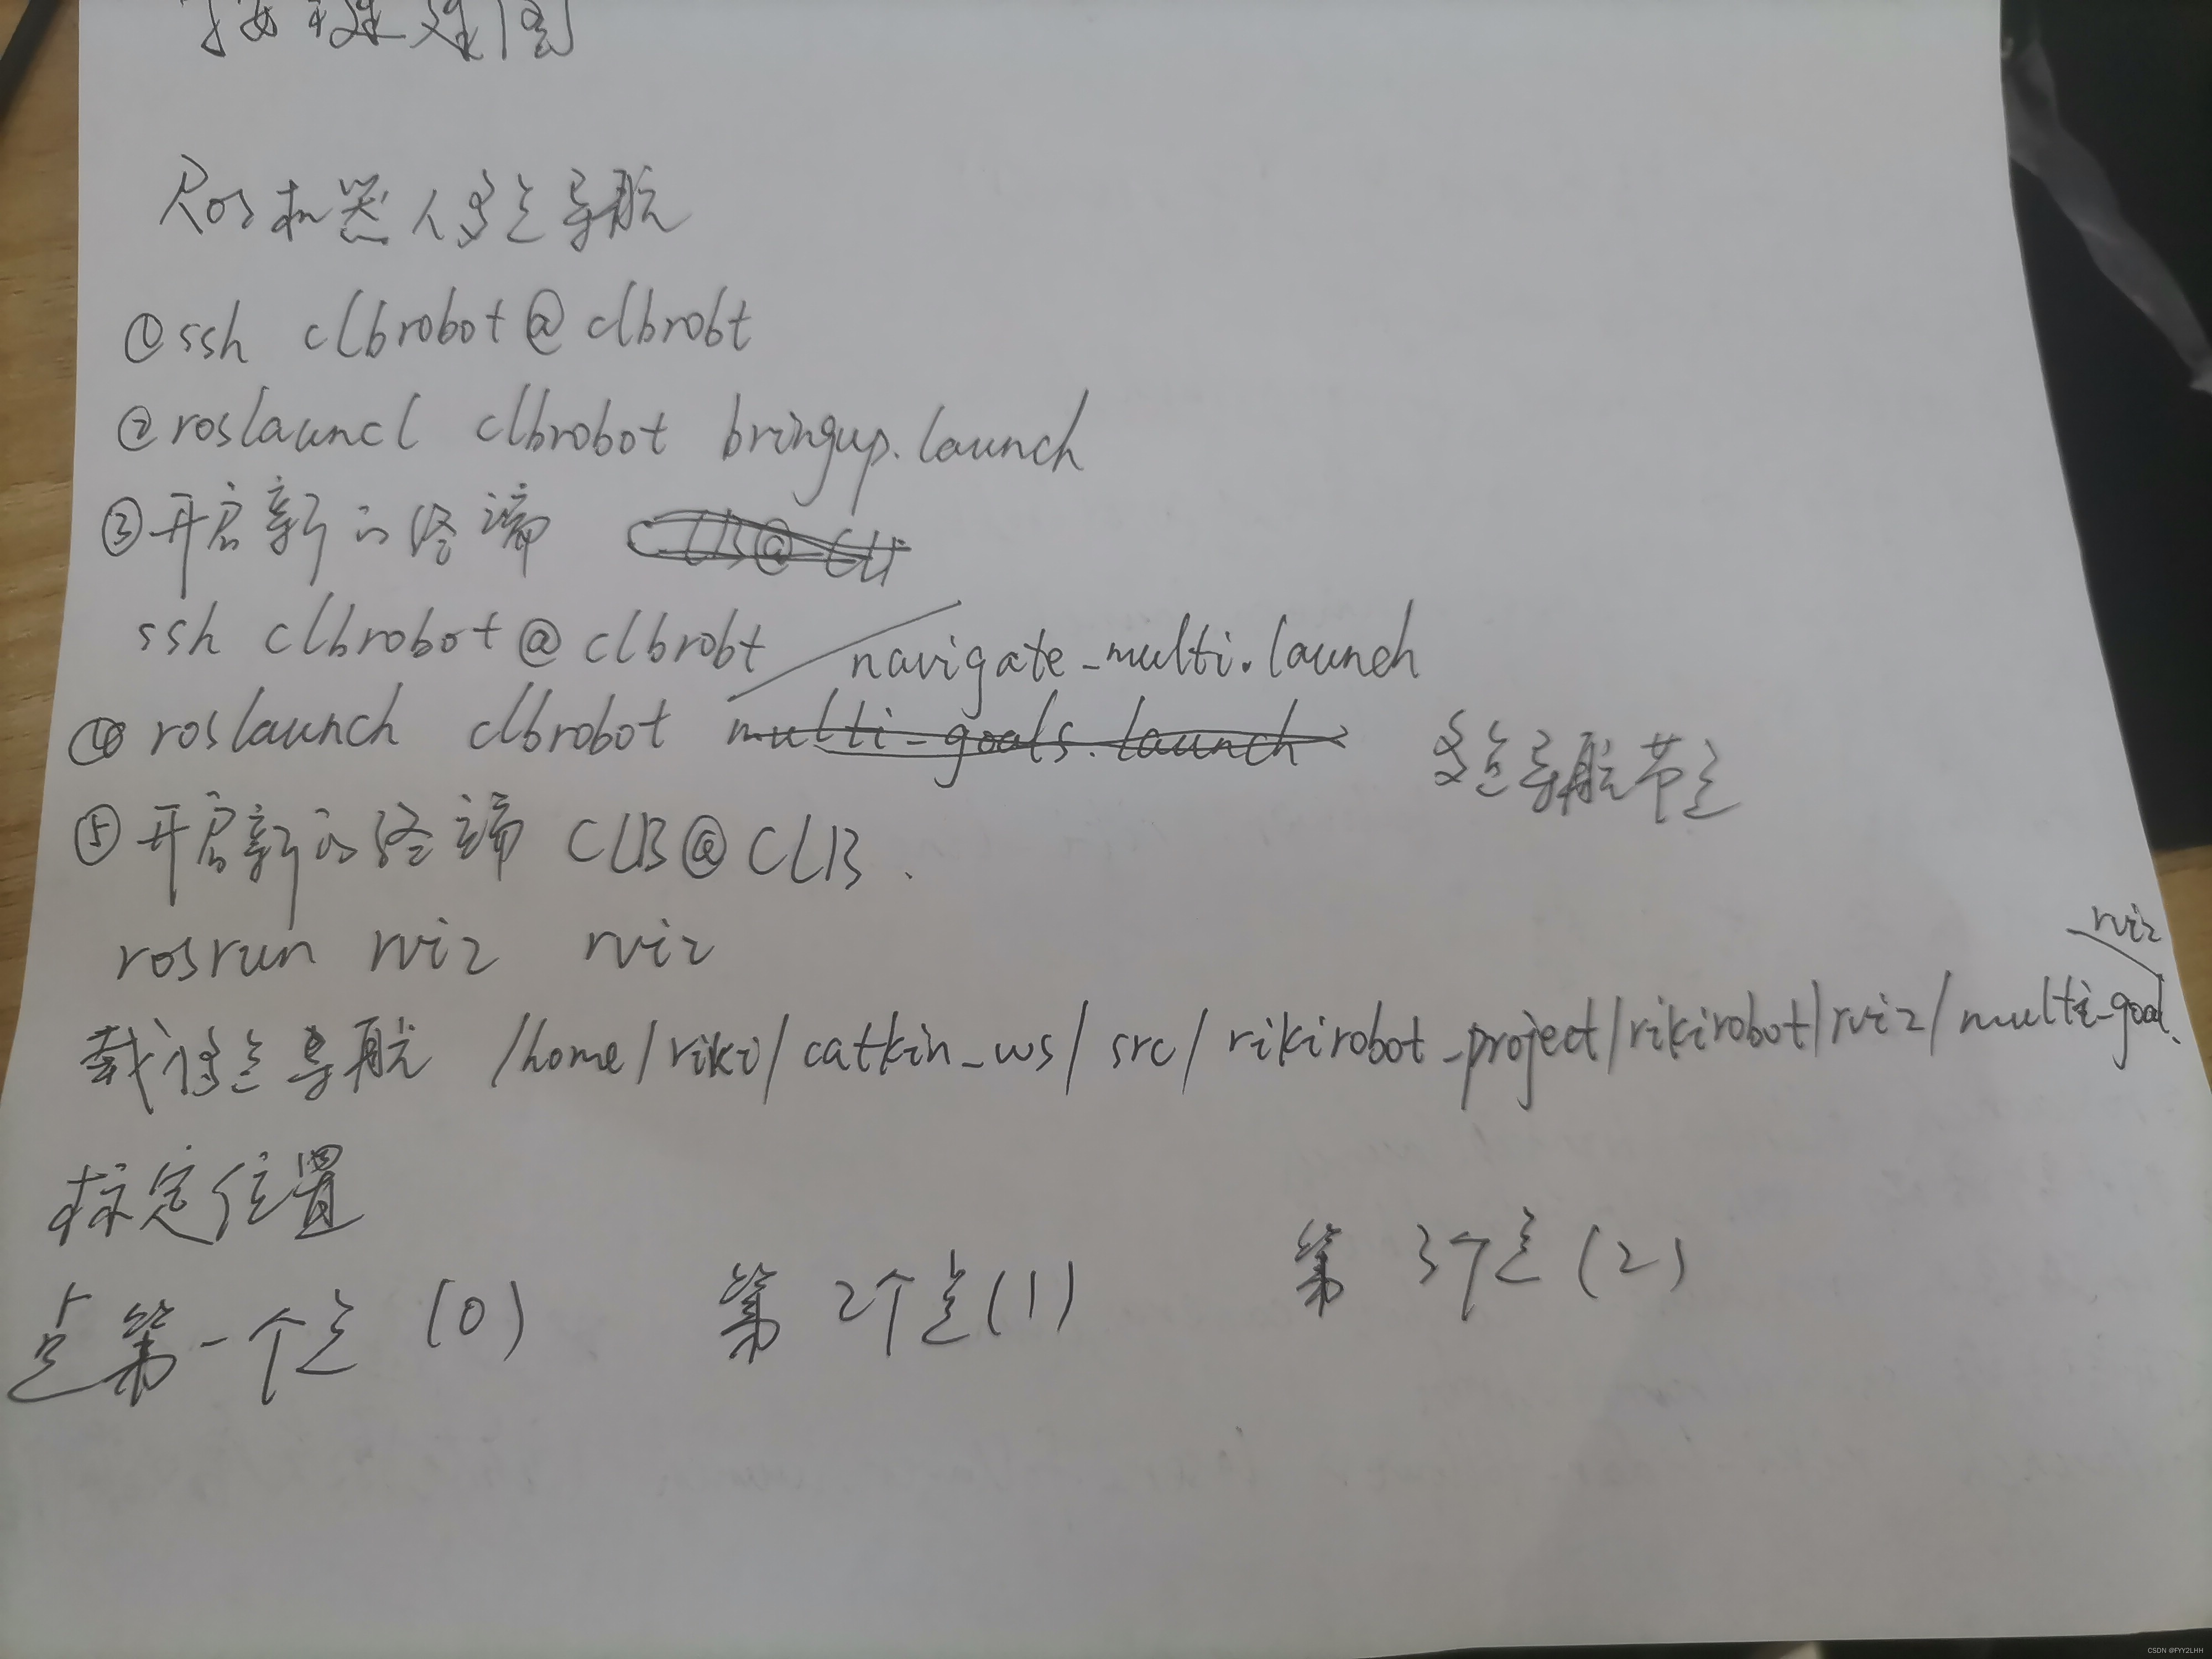 建图
Ros机器人多点导航
①ssh clbrobot@clbrobt
②roslauncl clbrobot bringup.launch
③开启新的终端
ssh clbrobot@clbrobt
navigate_multi.launch
④roslaunch clbrobot multi-goals.launch 多点导航节点
⑤开启新的终端 CLB@CLB.
rosrun rviz rviz
载多点导航 /home/riki/catkin_ws/src/rikirobot_project/rikirobot/rviz/multi-goal.rviz
标定位置
点第一个点(0) 第2个点(1) 第3个点(2)
CSDN @FYY2LHH